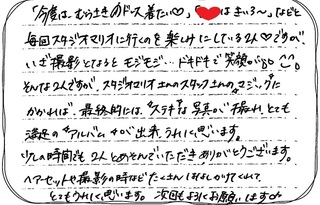 「今度は むらさきのドレス着たい♡」「♥は まいるー」などと
毎回スタジオマリオに行くのを楽しみにしている2人♡ですが、
いざ撮影となるとモジモジ…ドキドキで笑顔が
そんな2人ですが、スタジオマリオさんのスタッフさんの"マジック"に
かかれば、最終的には"ステキ"な写真が撮れ、とても
満足の"アルバム"が出来、うれしく思います。
の時間でも2人とあそんでいただき ありがとうございます。
ヘアーセットや撮影の時など たくさん はなしかけてくれて、
とてもうれしく思います。次回もよろしくお願いします